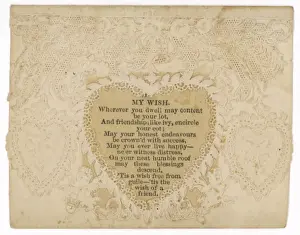 MY WISH.
Wherever you dwell may content
be your lot,
And friendship, like ivy, encircle
your cot;
May your honest endeavours
be crown'd with success,
May you ever live happy—
ne'er witness distress,
On your neat humble roof
may these blessings
descend,
'Tis a wish free from
guile—'tis the
wish of a
friend.